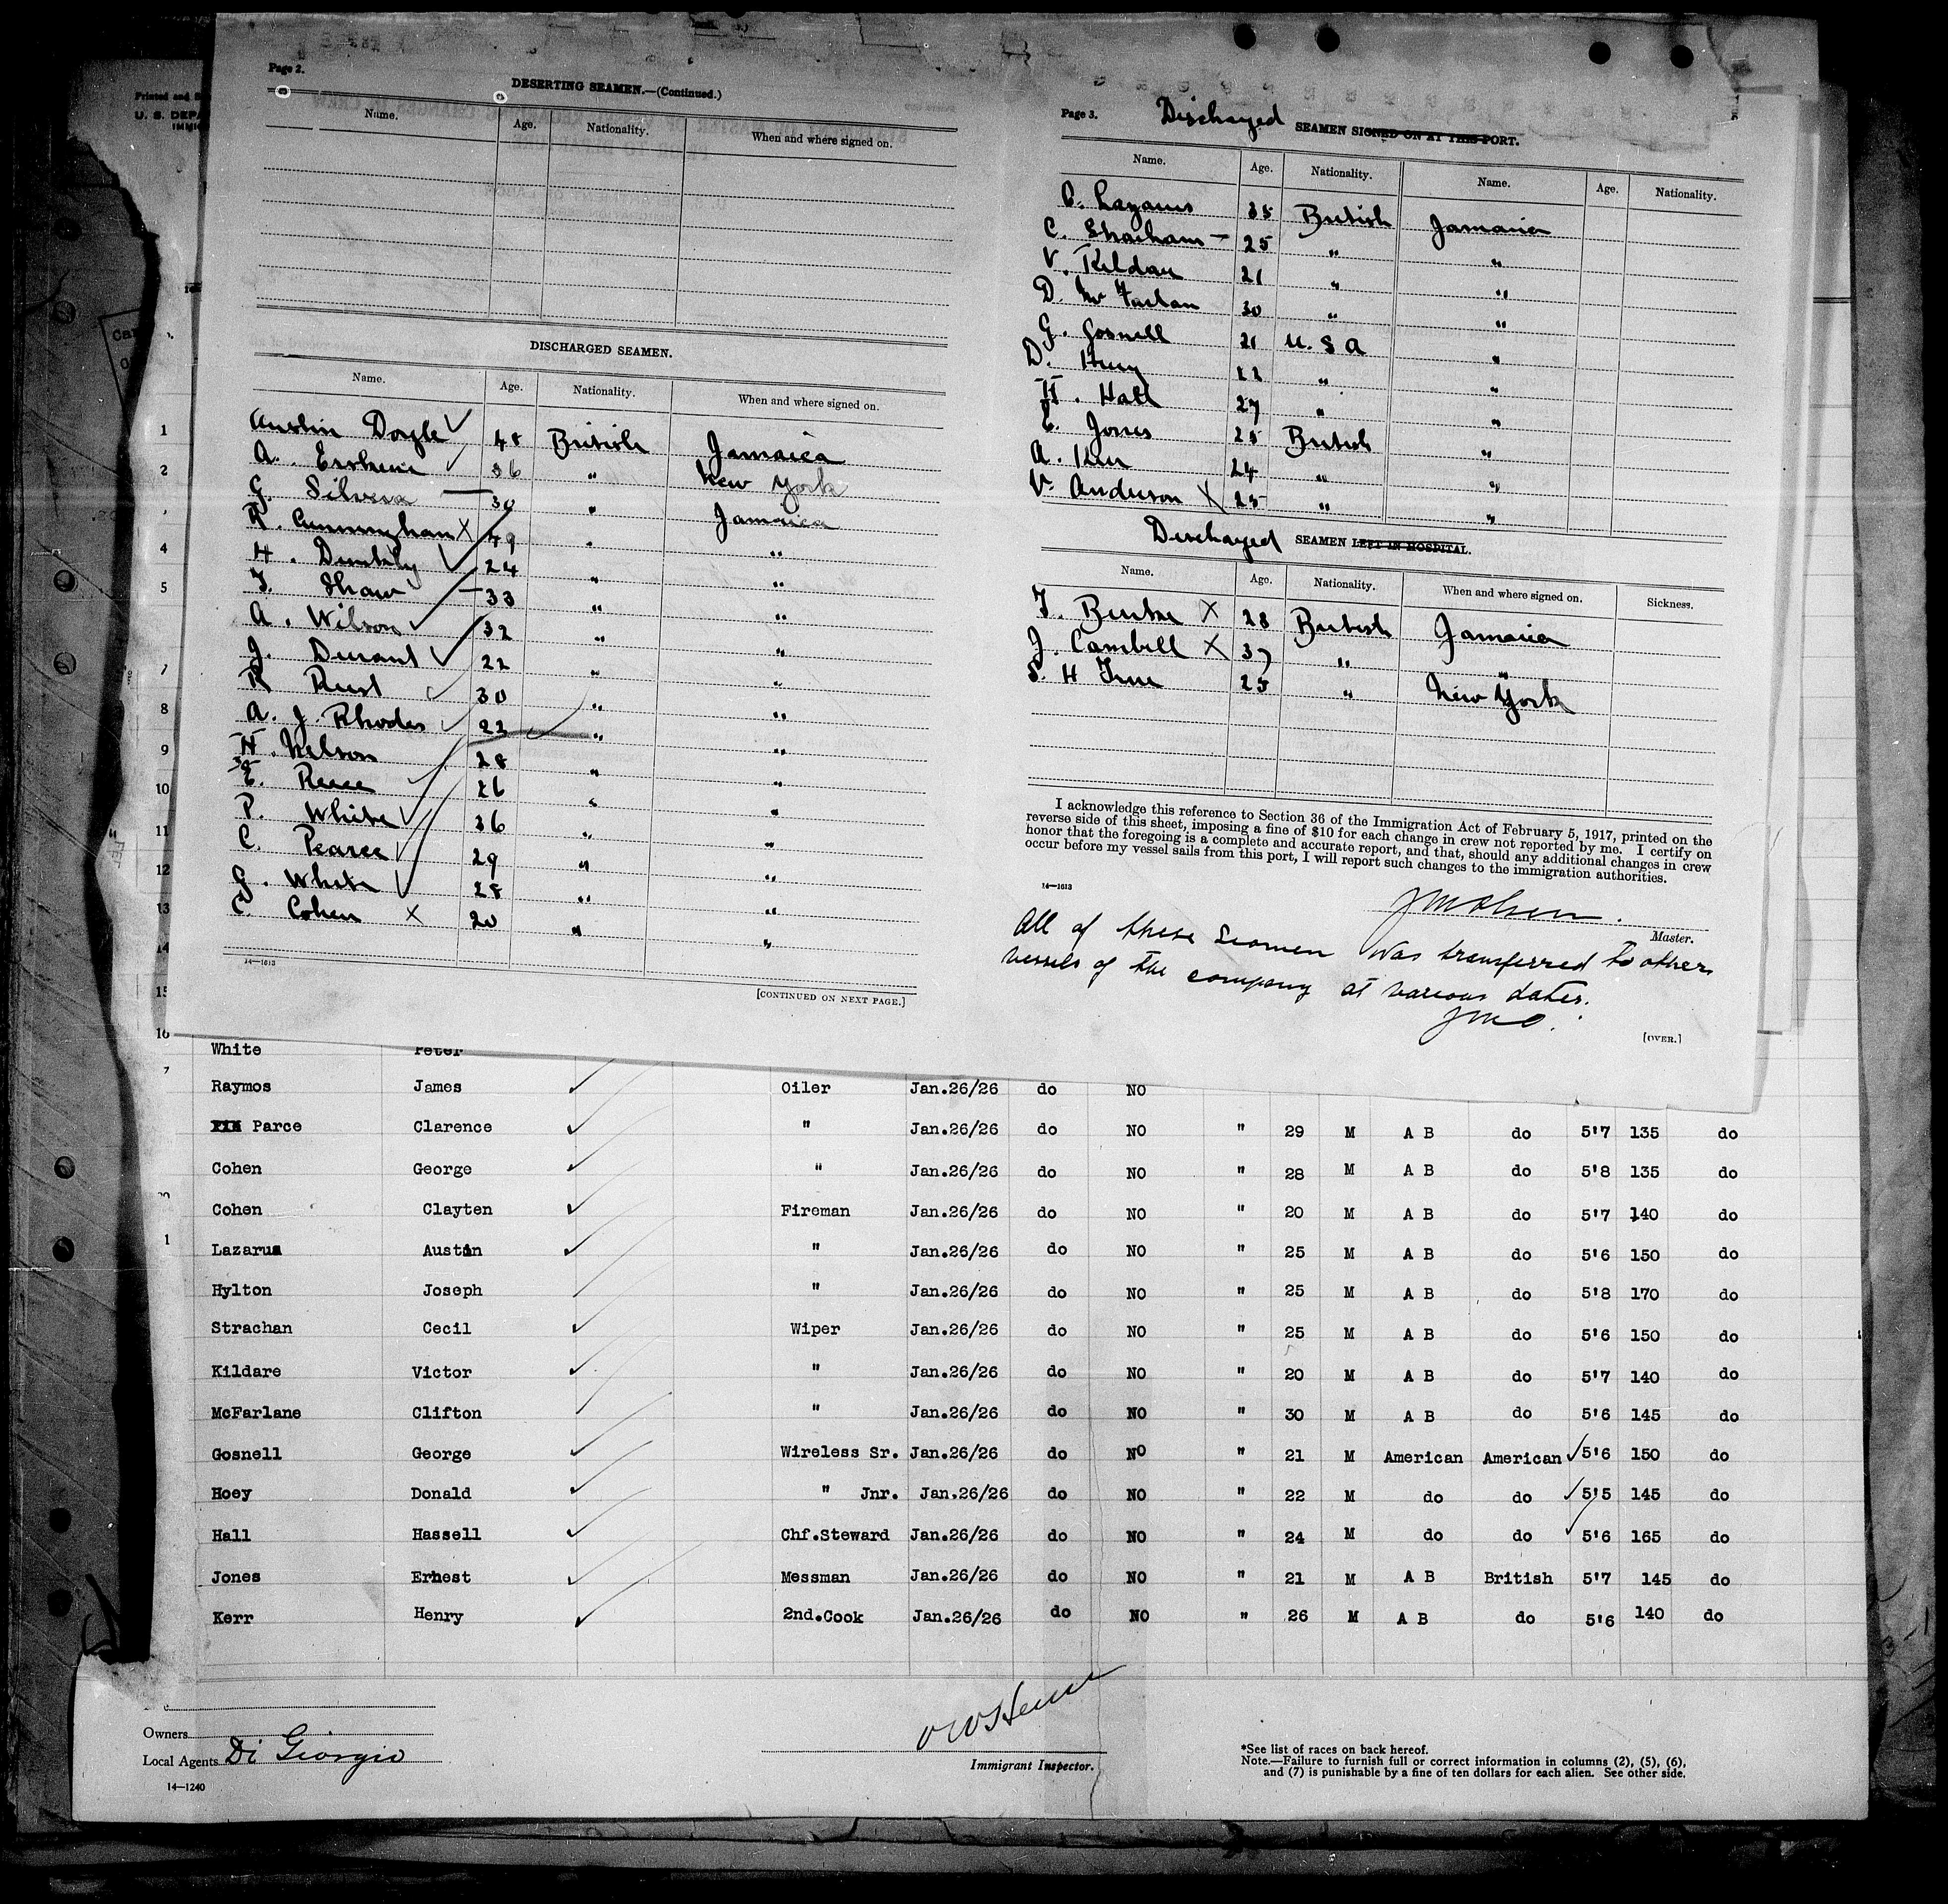 Printed and
U. S. DEPA
IMMI
Page 2.
DESERTING SEAMEN.—(Continued.)
Name. Age. Nationality. When and where signed on.
DISCHARGED SEAMEN.
Name. Age. Nationality. When and where signed on.
Austin Doyle 48 British Jamaica
A. Erskine 36 " New York
G. Silvera 30 " Jamaica
R. Cunningham X 49 " "
H. Dunkly 24 " "
F. Shaw 33 " "
A. Wilson 32 " "
J. Durant 22 " "
R Rust 30 " "
A. J. Rhodes 22 " "
H. Nelson 28 " "
E. Reece 26 " "
P. White 36 " "
C. Pearce 29 " "
G. White 28 " "
C Cohen X 20 " "
14—1613
[CONTINUED ON NEXT PAGE.]
Page 3.
Discharged SEAMEN SIGNED ON AT THIS PORT.
Name. Age. Nationality. Name. Age. Nationality.
Lazarus 35 British Jamaica
C. Stracham 25 " "
V. Kildare 21 " "
D. Mc Farlan 30 " "
G. Gosnell 21 U.S.A "
D. Huey 22 " "
H. Hall 27 " "
E. Jones 25 British "
A. Kerr 24 " "
V. Anderson X 25 " "
Discharged SEAMEN LEFT IN HOSPITAL.
Name. Age. Nationality. When and where signed on. Sickness.
F. Burke X 28 British Jamaica
J. Cambell X 37 " "
S. H 25 " New York
I acknowledge this reference to Section 36 of the Immigration Act of February 5, 1917, printed on the
reverse side of this sheet, imposing a fine of $10 for each change in crew not reported by me. I certify on
honor that the foregoing is a complete and accurate report, and that, should any additional changes in crew
occur before my vessel sails from this port, I will report such changes to the immigration authorities.
14—1613
J M Olsen.
Master.
All of these Seamen was transferred to others
vessels of the company at various dates.
J M O.
[OVER.]
White Peter
Raymos James Oiler Jan.26/26 do NO
Parce Clarence " Jan.26/26 do NO " 29 M A B do 5'7 135 do
Cohen George " Jan.26/26 do NO " 28 M A B do 5'8 135 do
Cohen Clayten Fireman Jan.26/26 do NO " 20 M A B do 5'7 140 do
Lazarus Austin " Jan.26/26 do NO " 25 M A B do 5'6 150 do
Hylton Joseph " Jan.26/26 do NO " 25 M A B do 5'8 170 do
Strachan Cecil Wiper Jan.26/26 do NO " 25 M A B do 5'6 150 do
Kildare Victor " Jan.26/26 do NO " 20 M A B do 5'7 140 do
McFarlane Clifton " Jan.26/26 do NO " 30 M A B do 5'6 145 do
Gosnell George Wireless Sr. Jan.26/26 do NO " 21 M American American 5'6 150 do
Hoey Donald " Jnr. Jan.26/26 do NO " 22 M do do 5'5 145 do
Hall Hassell Chf.Steward Jan.26/26 do NO " 24 M do do 5'6 165 do
Jones Ernest Messman Jan.26/26 do NO " 21 M A B British 5'7 145 do
Kerr Henry 2nd.Cook Jan.26/26 do NO " 26 M A B do 5'6 140 do
Owners
Local Agents Di Giorgio
14—1240
Immigrant Inspector.
*See list of races on back hereof.
Note.—Failure to furnish full or correct information in columns (2), (5), (6),
and (7) is punishable by a fine of ten dollars for each alien. See other side.